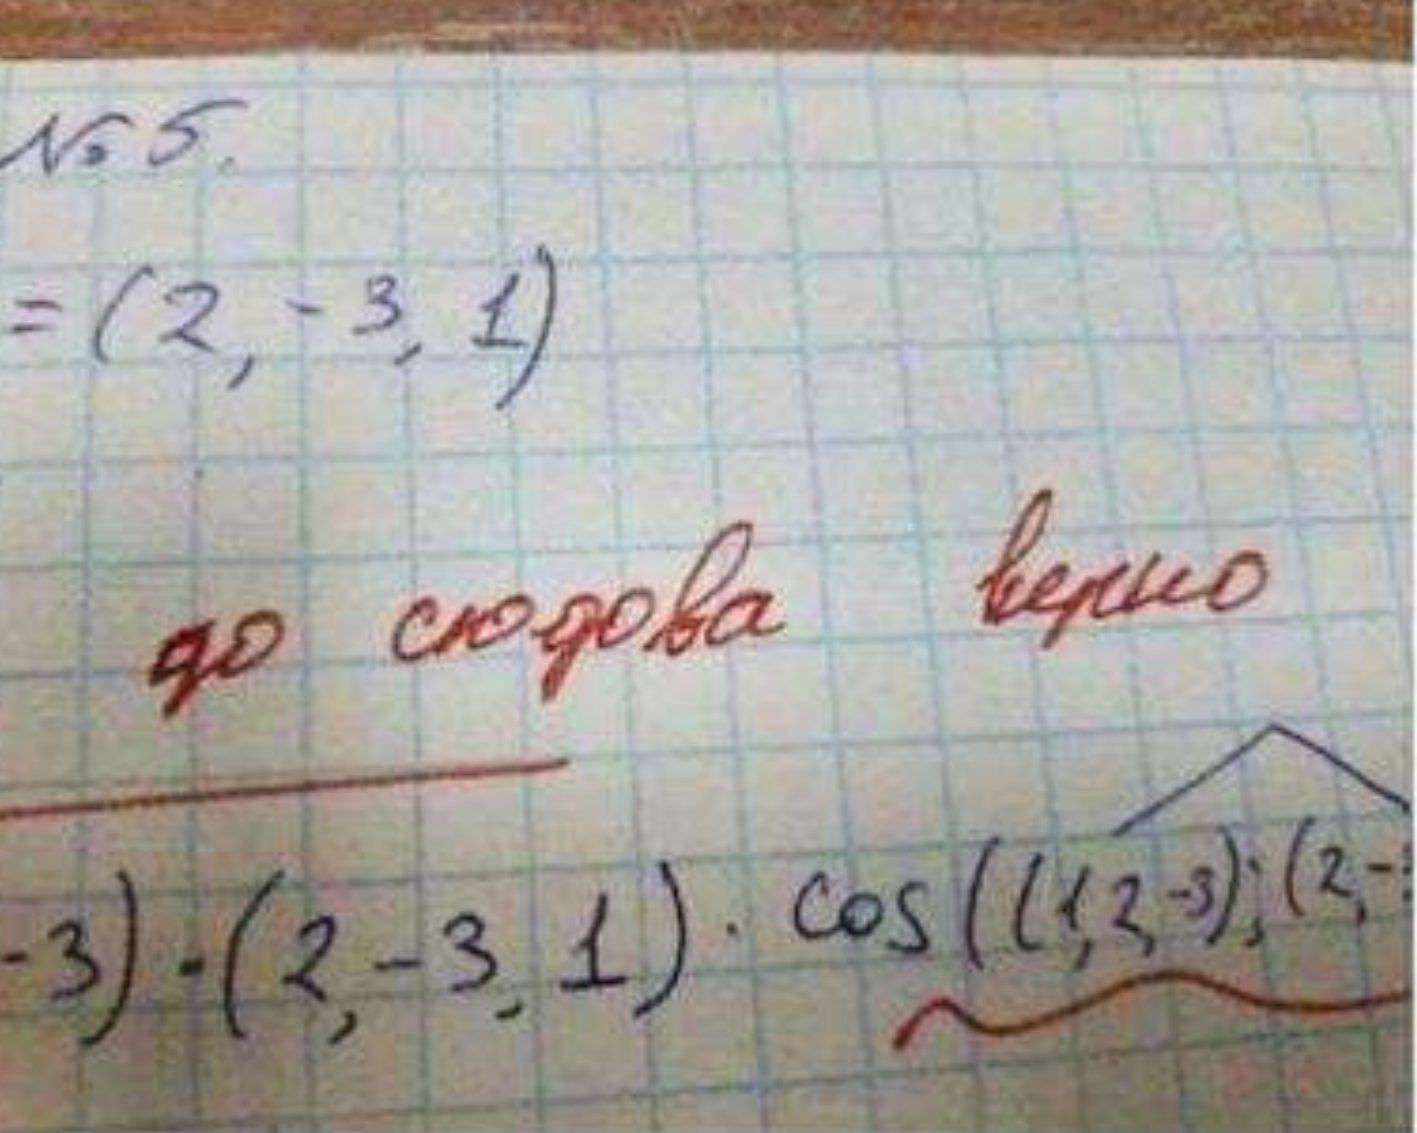 № 5.
= (2, -3, 1)
до сюдова верно
-3) · (2, -3, 1) · cos((1,2,-3); (2,-